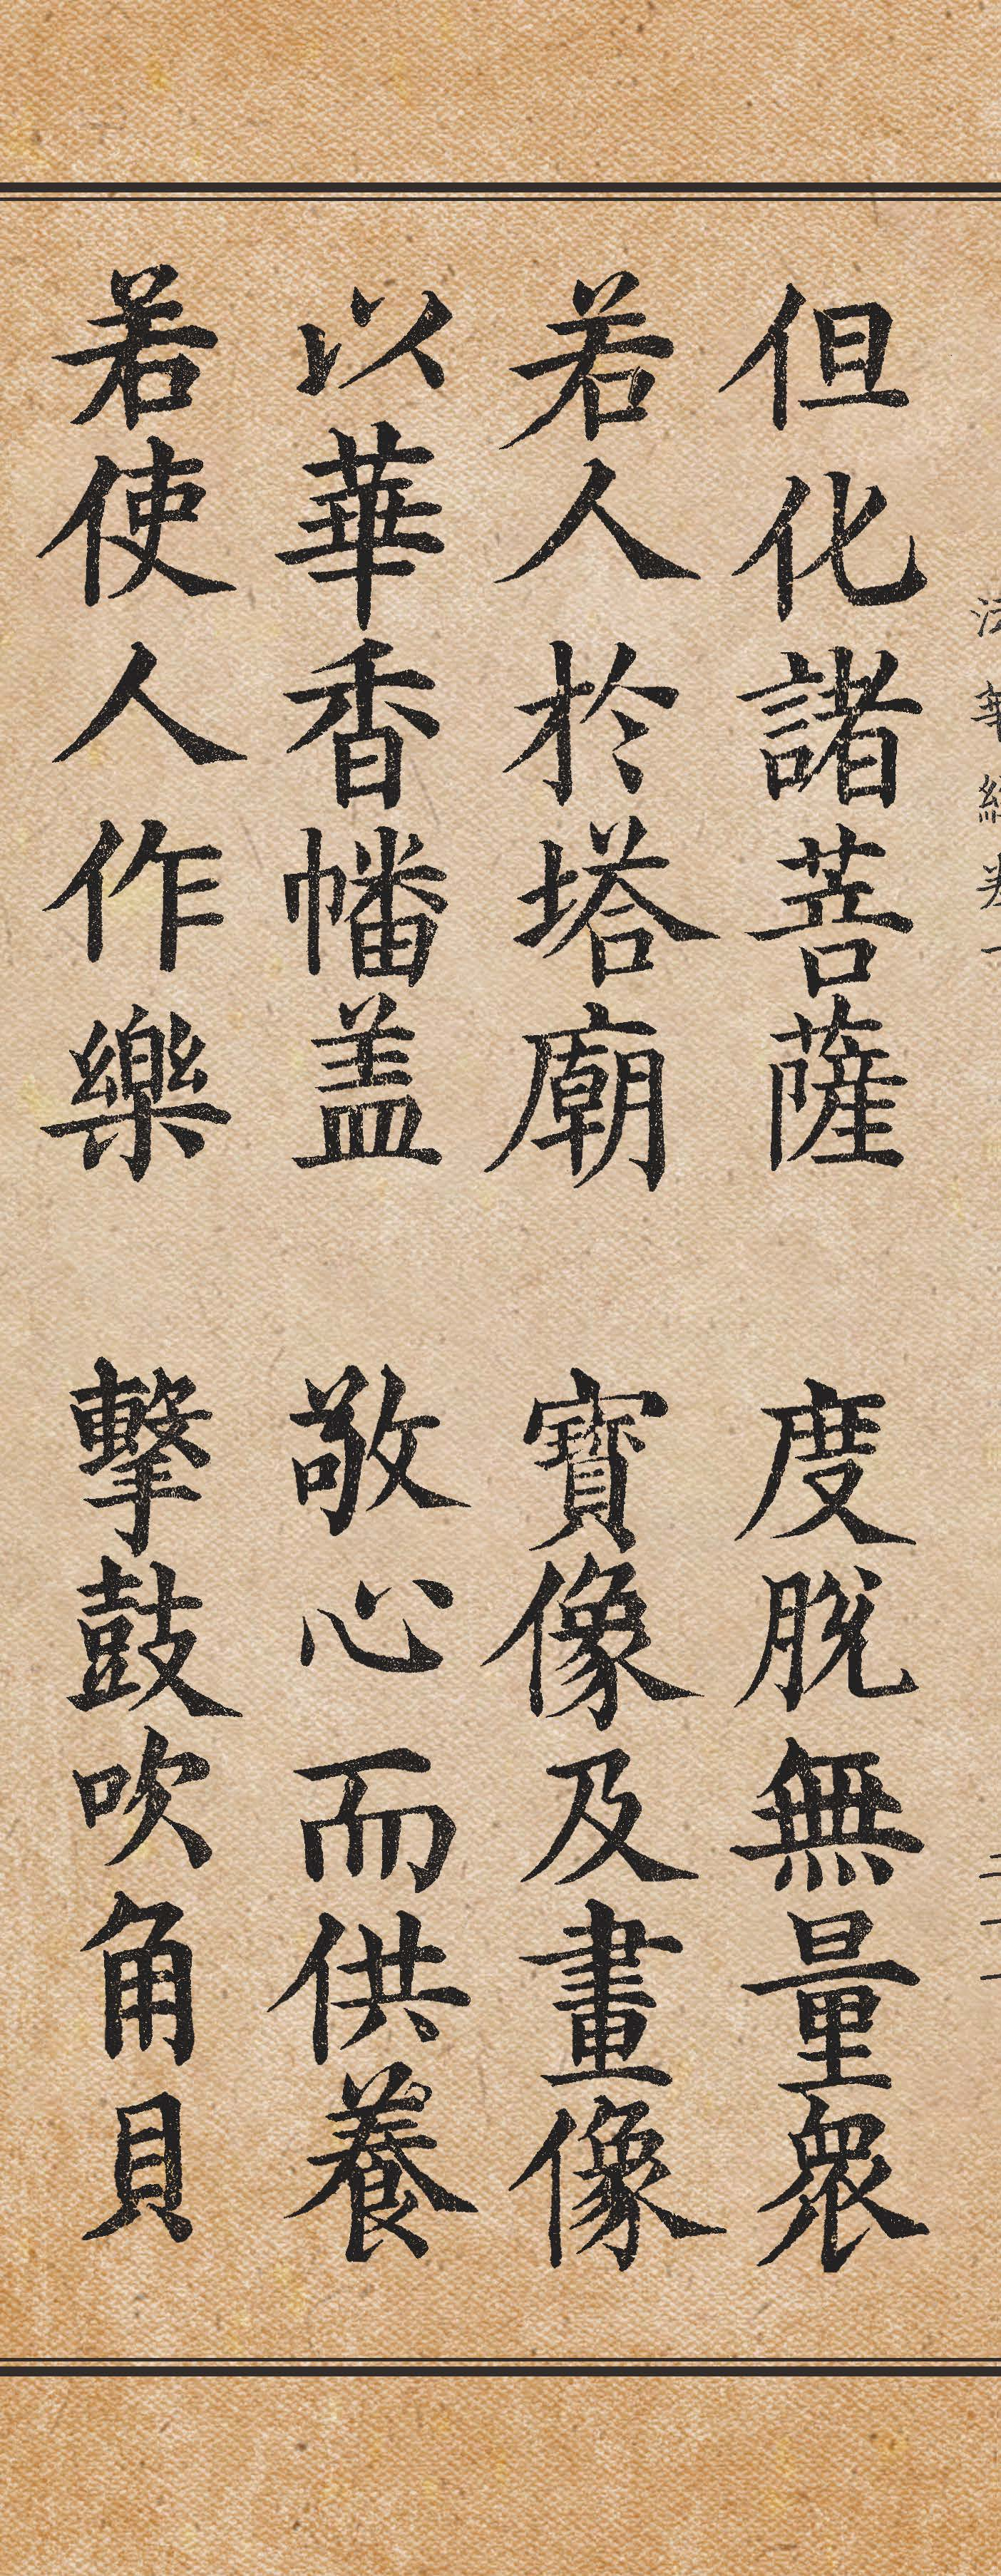 法華經卷一 三十一
但化諸菩薩 度脫無量眾
若人於塔廟 寶像及畫像
以華香幡盖 敬心而供養
若使人作樂 擊鼓吹角貝